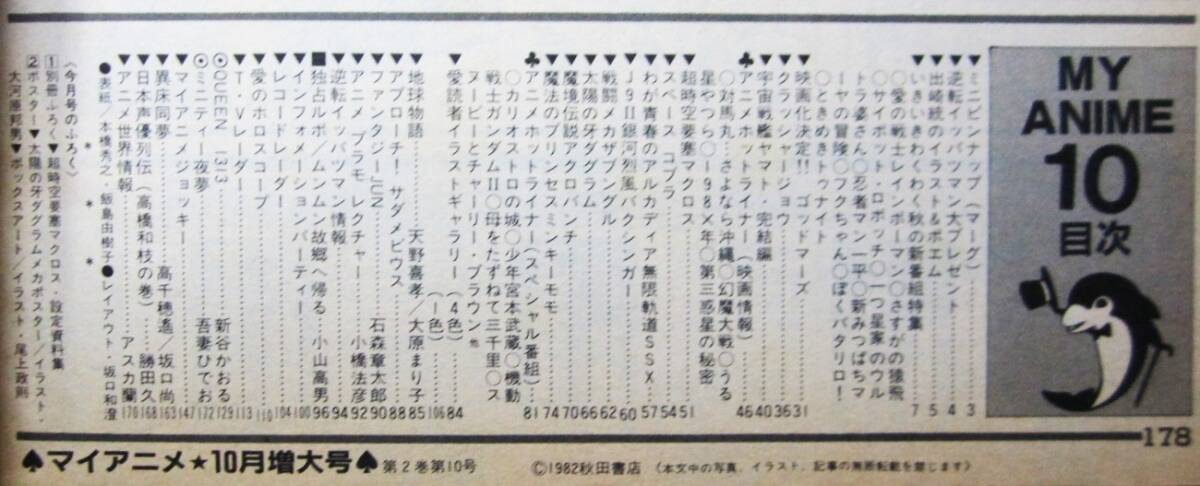 MY
ANIME
10
目次
▼ミニピンナップ(マーグ) 3
▼逆転イッパツマン大プレゼント 4
▼出崎統のイラスト&ポエム 5
▼いきいきわくわく秋の新番組特集 7
○愛の戦士レインボーマン○さすがの猿飛
○サイボット・ロボッチ○一つ星家のウル
トラ婆さん○忍者マン一平○新みつばちマ
ーヤの冒険○フクちゃん○ぼくパタリロ!
○ときめきトゥナイト
▼映画化決定!! ゴッドマーズ 31
▼クラッシャージョウ 36
▼宇宙戦艦ヤマト・完結編 40
♣アニメホットライナー(映画情報) 46
○対馬丸―さよなら沖縄○幻魔大戦○うる
星やつら○198X年○第三惑星の秘密
▼超時空要塞マクロス 51
▼スペースコブラ 54
▼わが青春のアルカディア無限軌道SSX 57
▼J9Ⅱ銀河烈風バクシンガー 60
▼戦闘メカザブングル 62
▼太陽の牙ダグラム 66
▼魔境伝説アクロバンチ 70
▼魔法のプリンセスミンキーモモ 74
♣アニメホットライナー(スペシャル番組) 81
○カリオストロの城○少年宮本武蔵○機動
戦士ガンダムⅡ○母をたずねて三千里○ス
ヌーピーとチャーリー・ブラウン他
▼愛読者イラストギャラリー(4色) 84
(1色) 106
▼地球物語 天野喜孝/大原まり子 85
▼アプローチ! サダメビウス 88
▼ファンタジーJUN 石森章太郎 90
▼アニメ・プラモ・レクチャー 小橋法彦 92
▼逆転イッパツマン情報 94
■独占ルポ/ムンムン故郷へ帰る 小山高男 96
▼インフォメーションパーティー 100
▼レコードレーダー 104
▼愛のホロスコープ 110
▼T・Vレーダー 113
◎QUEEN 1313 新谷かおる 129
◎ミニティー夜夢 吾妻ひでお 172
▼マイアニメジョッキー 147
▼異床同夢 高千穂遙/坂口尚 163
▼日本声優列伝(高橋和枝の巻) 勝田久 168
▼アニメ世界情報 アスカ蘭 170
●表紙/本橋秀之・飯島由樹子●レイアウト・坂口和澄
* * *
〈今月号のふろく〉
1別冊ふろく▼超時空要塞マクロス・設定資料集
2ポスター▼太陽の牙ダグラムメカポスター/イラスト・
大河原邦男▼ボックスアート/イラスト・尾上政則
178
♠マイアニメ★10月増大号♠ 第2巻第10号 ©1982秋田書店 (本文中の写真、イラスト、記事の無断転載を禁じます)